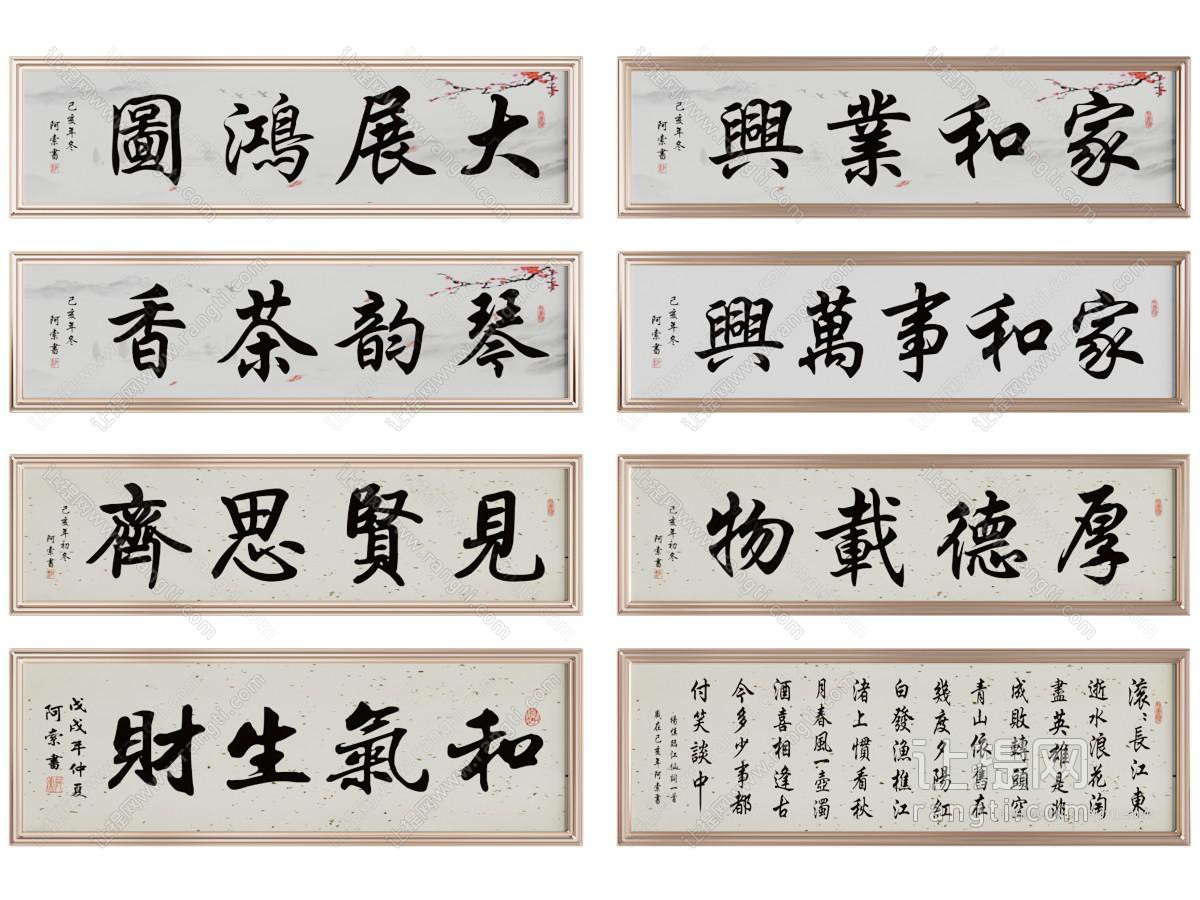 大展鴻圖
己亥年冬
阿索書
家和業興
己亥年冬
阿索書
琴韵茶香
己亥年冬
阿索書
家和事萬興
己亥年冬
阿索書
見賢思齊
己亥年初冬
阿索書
厚德載物
己亥年初冬
阿索書
和氣生財
戊戌年仲夏
阿索書
滚〻長江東
逝水浪花淘
盡英雄是非
成敗轉頭空
青山依舊在
幾度夕陽紅
白發漁樵江
渚上慣看秋
月春風一壺濁
酒喜相逢古
今多少事都
付笑談中
楊慎臨江仙詞一首
歲在己亥年阿索書
让提网
rangti.com